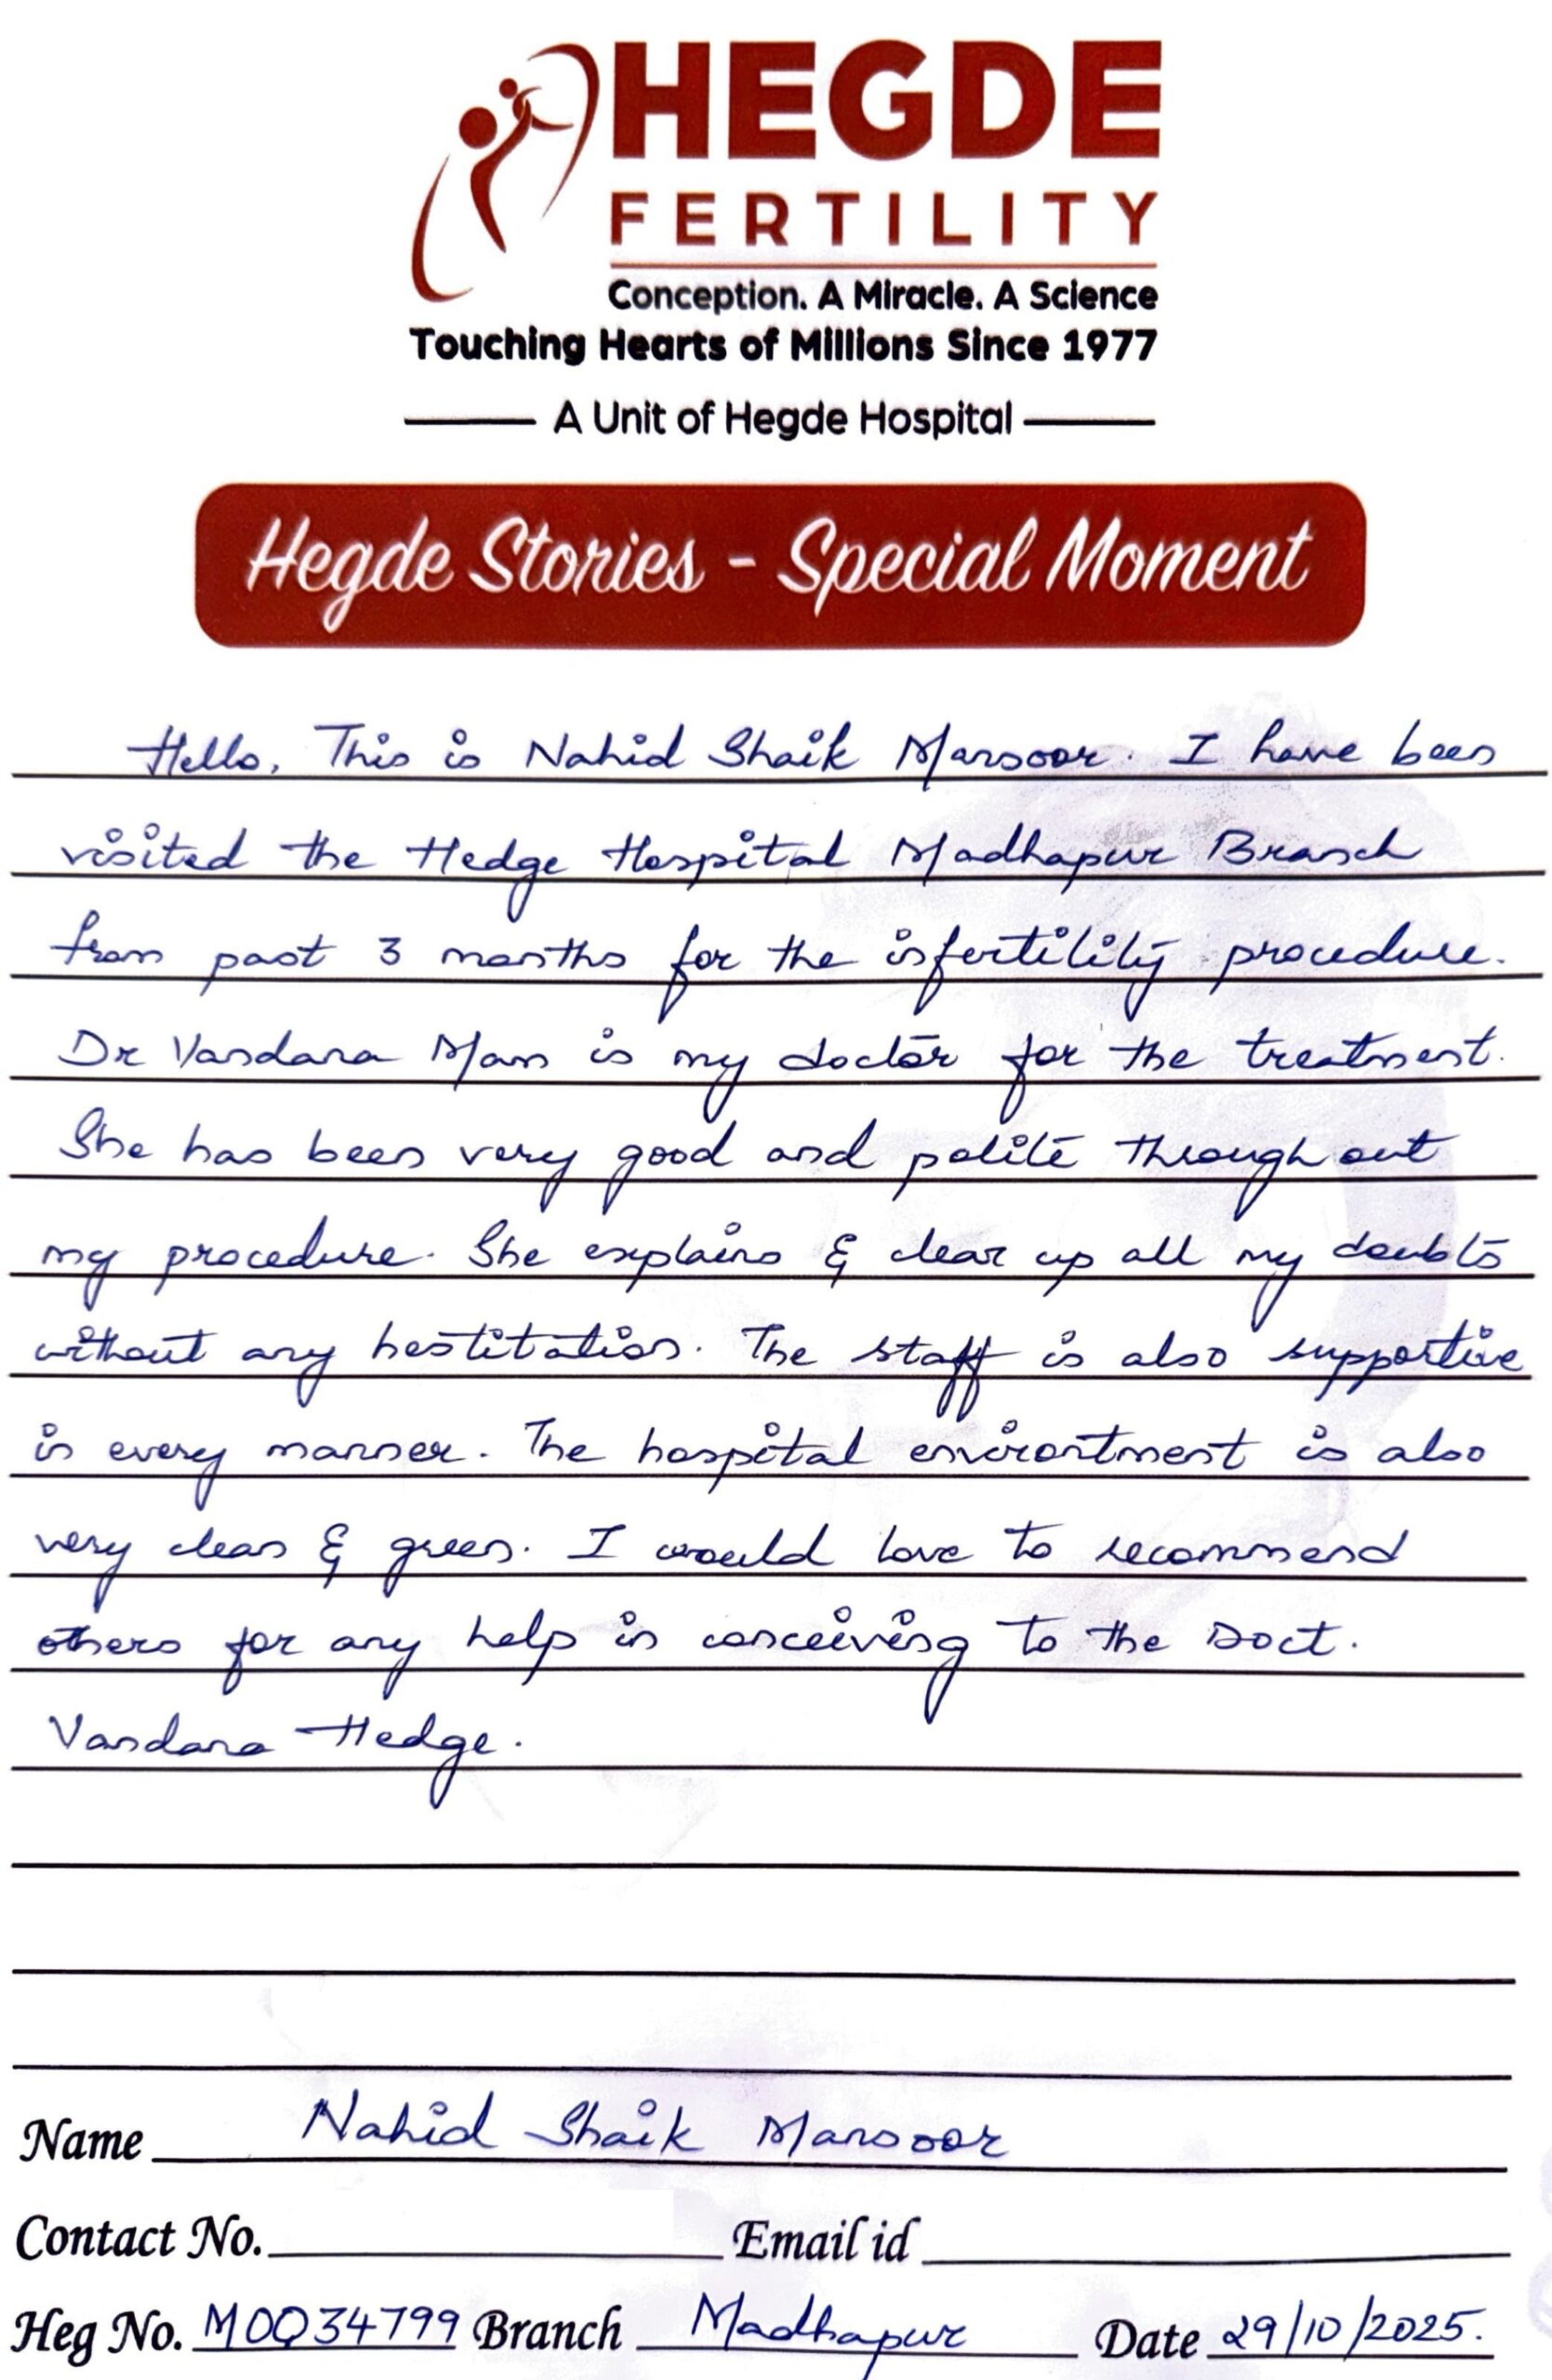 HEGDE
FERTILITY
Conception. A Miracle. A Science
Touching Hearts of Millions Since 1977
A Unit of Hegde Hospital
Hegde Stories - Special Moment
Hello, This is Nahid Shaik Mansoor. I have been
visited the Hedge Hospital Madhapur Branch
from past 3 months for the infertility procedure.
Dr Vandana Mam is my doctor for the treatment.
She has been very good and polite through out
my procedure. She explains & clear up all my doubts
without any hestitation. The staff is also supportive
in every manner. The hospital environtment is also
very clean & green. I would love to recommend
others for any help in conceiving to the Doct.
Vandana Hedge.
Name Nahid Shaik Mansoor
Contact No. Email id
Heg No. M0Q34799 Branch Madhapur Date 29/10/2025.